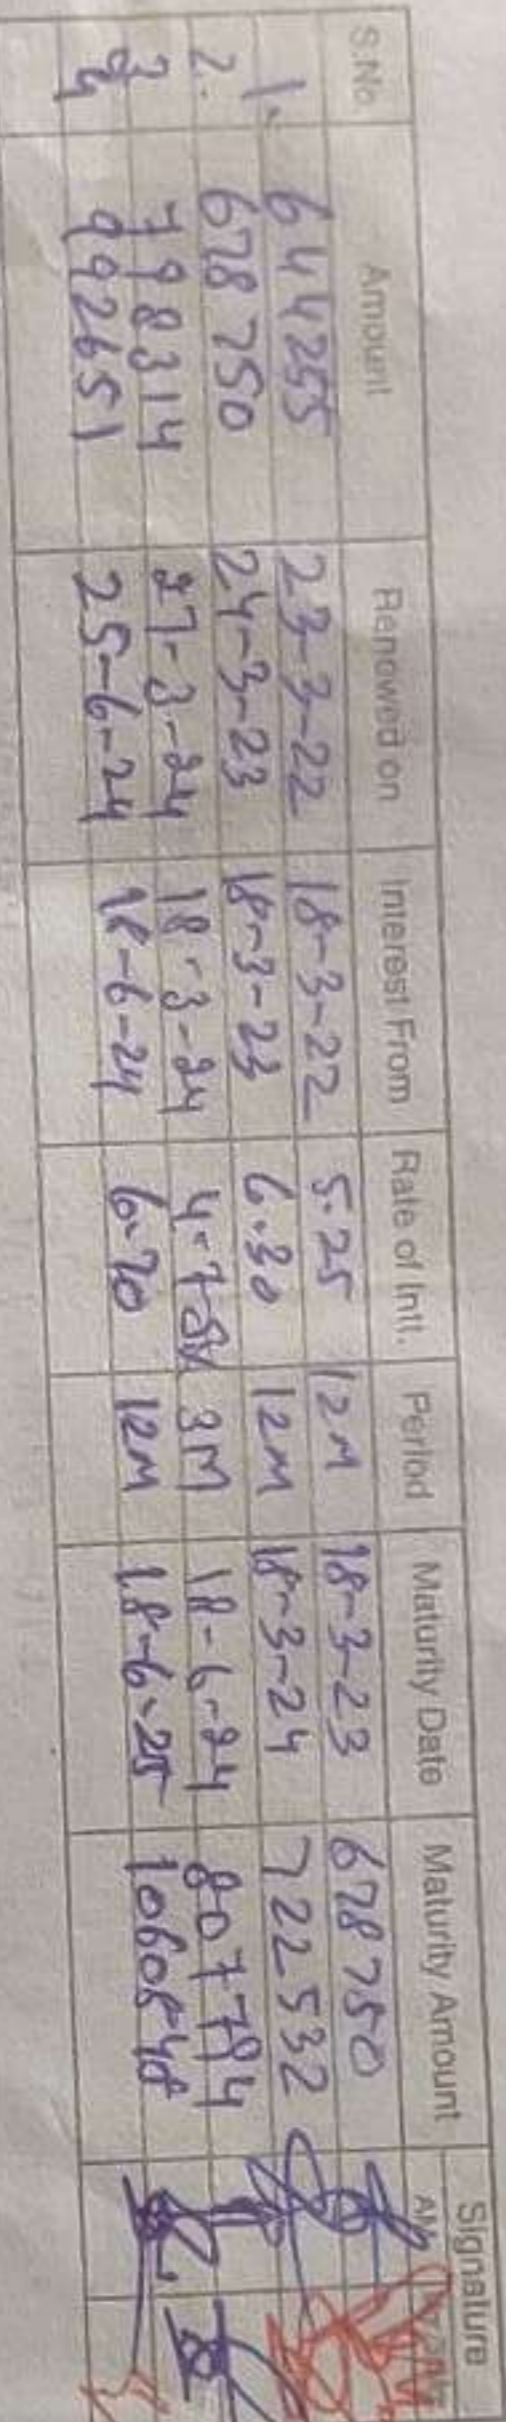 S.No. Amount Renewed on Interest From Rate of Intt. Period Maturity Date Maturity Amount Signature
1. 644255 23-3-22 18-3-22 5.25 12M 18-3-23 678750
2. 678750 24-3-23 18-3-23 6.30 12M 18-3-24 722532
3 798314 27-3-24 18-3-24 4.75% 3M 18-6-24 807794
4 992651 25-6-24 18-6-24 6.70 12M 18-6-25 1060848